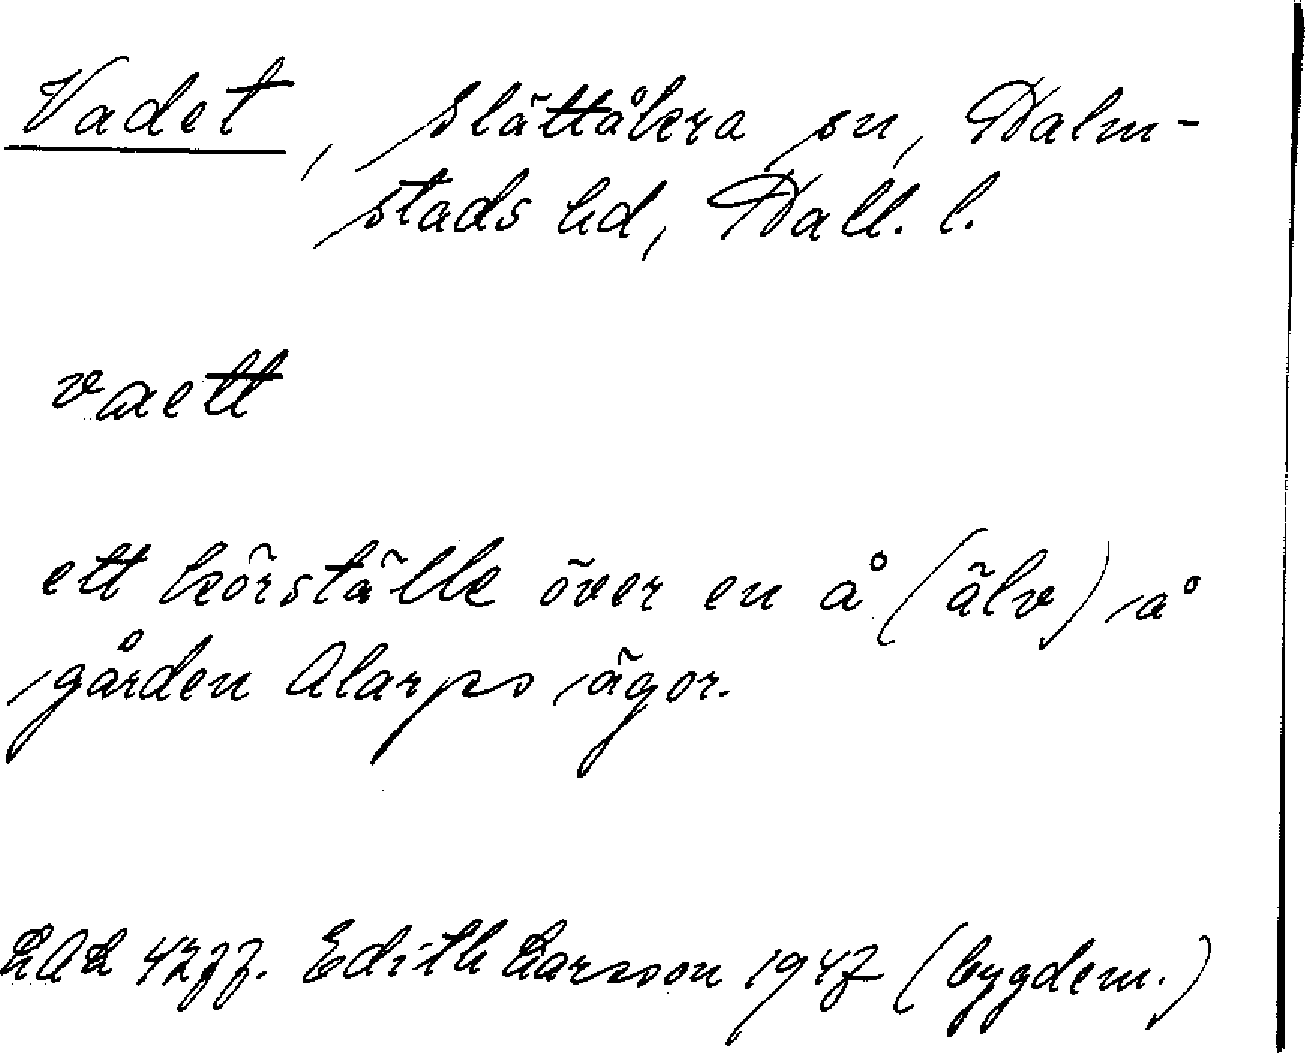 Vadet, Slättåkra sn, Halm-
stads hd, Hall. l.
vaett
ett körställe över en å (älv) å
gården Alarps ägor.
LAL 4277. Edith Larsson 1947 (bygdem.)